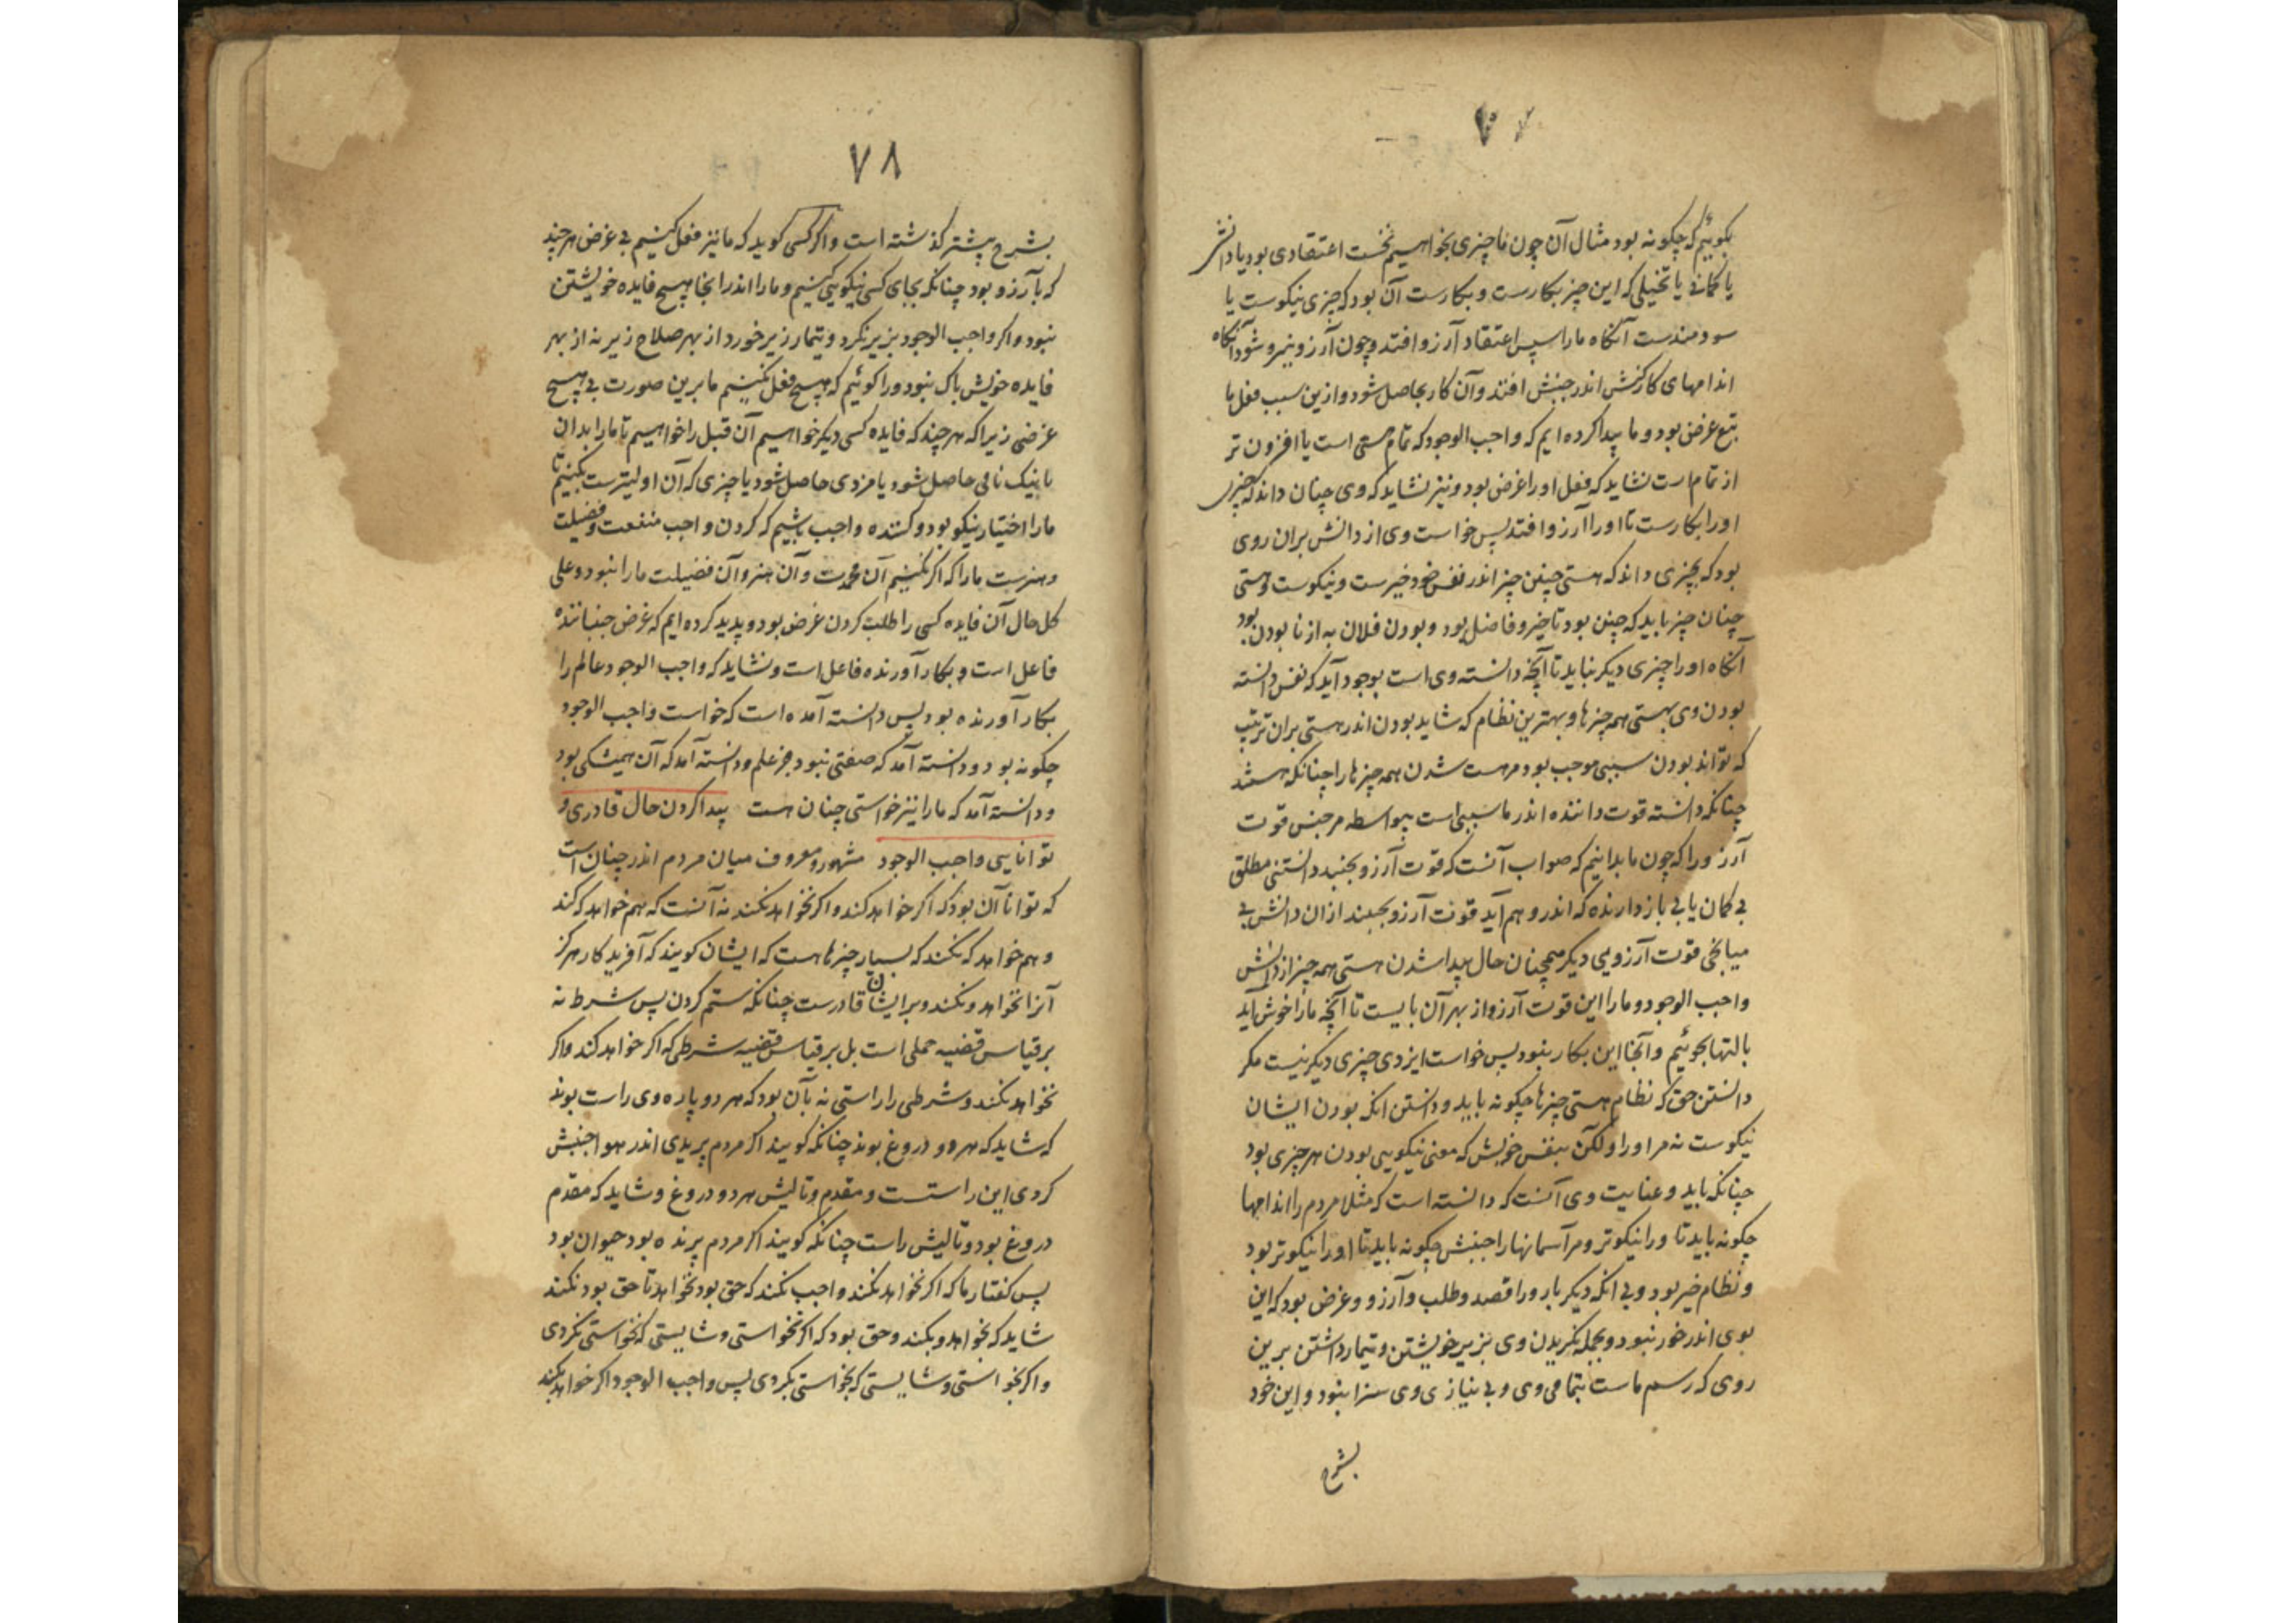 بگوئیم که چگونه بود مثال آن چون ما چیزی بخواهیم نخست اعتقادی بود یا دانش
یا گمانی یا تخیلی که این چیز بکارست و بکارست آن بود که چیزی نیکوست یا
سودمندست آنگاه ما را سپس اعتقاد آرزو افتد و چون آرزو نیرو شود آنگاه
اندامهای کارکنش اندر جنبش افتند و آن کار بحاصل شود و ازین سبب فعل ما
تبع غرض بود و ما پیدا کرده ایم که واجب الوجود که تمام هستی است یا افزون تر
از تمام است نشاید که فعل او را غرض بود و نیز نشاید که وی چنان داند که چیزی
او را بکارست تا او را آرزو افتد پس خواست وی از دانش بران روی
بود که بچیزی داند که هستی چنین چیز اندر نفس خود خیرست و نیکوست و هستی
چنان چیز باید که چنین بود تا خیر و فاضل بود و بودن فلان به از نا بودن بود
آنگاه او را چیزی دیگر نباید تا آنچه دانسته وی است بوجود آید که نفس دانسته
بودن وی بهستی همه چیزها و بهترین نظام که شاید بودن اندر هستی بران ترتیب
که تواند بودن سببی موجب بود مر هست شدن همه چیزها را چنانکه هستند
چنانکه دانسته قوت داننده اندر ما سببی است بیواسطه مر جنبش قوت
آرزو را که چون ما بدانیم که صواب آنست که قوت آرزو بجنبد دانستنی مطلق
بی گمان یا بی باز دارنده که اندر وهم آید قوت آرزو بجنبد ازان دانش بی
میانجی قوت آرزویی دیگر همچنان حال پیدا شدن هستی همه چیز از دانش
واجب الوجود و ما را این قوت آرزو از بهر آن بایست تا آنچه ما را خوش آید
بالتها بجوئیم و آنجا این بکار نبود پس خواست ایزدی چیزی دیگر نیست مگر
دانستن حق که نظام هستی چیزها چگونه باید و دانستن انکه بودن ایشان
نیکوست نه مر او را ولکن بنفس خویش که معنی نیکویی بودن هر چیزی بود
چنانکه باید و عنایت وی آنست که دانسته است که مثلا مردم را اندامها
چگونه باید تا ورا نیکوتر و مر آسمانها را جنبش چگونه باید تا او را نیکوتر بود
و نظام خیر بود و بی انکه دیگر بار ورا قصد و طلب و آرزو و غرض بود که این
بوی اندر خور نبود و بجمله نگریدن وی بزیر خویشتن و تیمار داشتن برین
روی که رسم ماست بتمامی وی و بی نیازی وی سزا نبود و این خود
بشرح
۷۸
بشرح پیشتر گذشته است و اگر کسی گوید که ما نیز فعل کنیم بی غرض هر چند
که بآرزو بود چنانکه بجای کسی نیکویی کنیم و ما را اندر انجا هیچ فایده خویشتن
نبود و اگر واجب الوجود بزیر نگرد و تیمار زیر خورد از بهر صلاح زیر نه از بهر
فایده خویش باک نبود ورا گوئیم که هیچ فعل نکنیم ما برین صورت بی هیچ
غرضی زیرا که هر چند که فایده کسی دیگر خواهیم آن قبل را خواهیم تا ما را بدان
یا نیک نامی حاصل شود یا مزدی حاصل شود یا چیزی که آن اولیترست بکنیم تا
ما را اختیار نیکو بود و کننده واجب باشیم که کردن واجب منفعت و فضیلت
و هنرست ما را که اگر نکنیم آن محمدت و آن هنر و آن فضیلت ما را نبود و علی
کل حال آن فایده کسی را طلب کردن غرض بود و پدید کرده ایم که غرض جنباننده
فاعل است و بکار آورنده فاعل است و نشاید که واجب الوجود عالم را
بکار آورنده بود پس دانسته آمده است که خواست واجب الوجود
چگونه بود و دانسته آمد که صفتی نبود جز علم و دانسته آمد که آن همیشگی بود
و دانسته آمد که ما را نیز خواستی چنان هست پیدا کردن حال قادری و
توانایی واجب الوجود مشهور و معروف میان مردم اندر چنان است
که توانا آن بود که اگر خواهد کند و اگر نخواهد نکند نه آنست که هم خواهد که کند
و هم خواهد که نکند که بسیار چیزها هست که ایشان گویند که آفریدگار هرگز
آنرا نخواهد و نکند و بر ایشان قادرست چنانکه ستم کردن پس شرط نه
بر قیاس قضیه حملی است بل بر قیاس قضیه شرطی که اگر خواهد کند و اگر
نخواهد نکند و شرطی را راستی نه بآن بود که هر دو پاره وی راست بوند
که شاید که هر دو دروغ بوند چنانکه گویند اگر مردم پریدی اندر هوا جنبش
کردی این راست و مقدم و تالیش هر دو دروغ و شاید که مقدم
دروغ بود و تالیش راست چنانکه گویند اگر مردم پرنده بود حیوان بود
پس گفتار ما که اگر نخواهد نکند واجب نکند که حق بود نخواهد تا حق بود نکند
شاید که بخواهد و بکند و حق بود که اگر نخواستی و شایستی که نخواستی نکردی
و اگر بخواستی و شایستی که بخواستی بکردی پس واجب الوجود اگر خواهد بکند